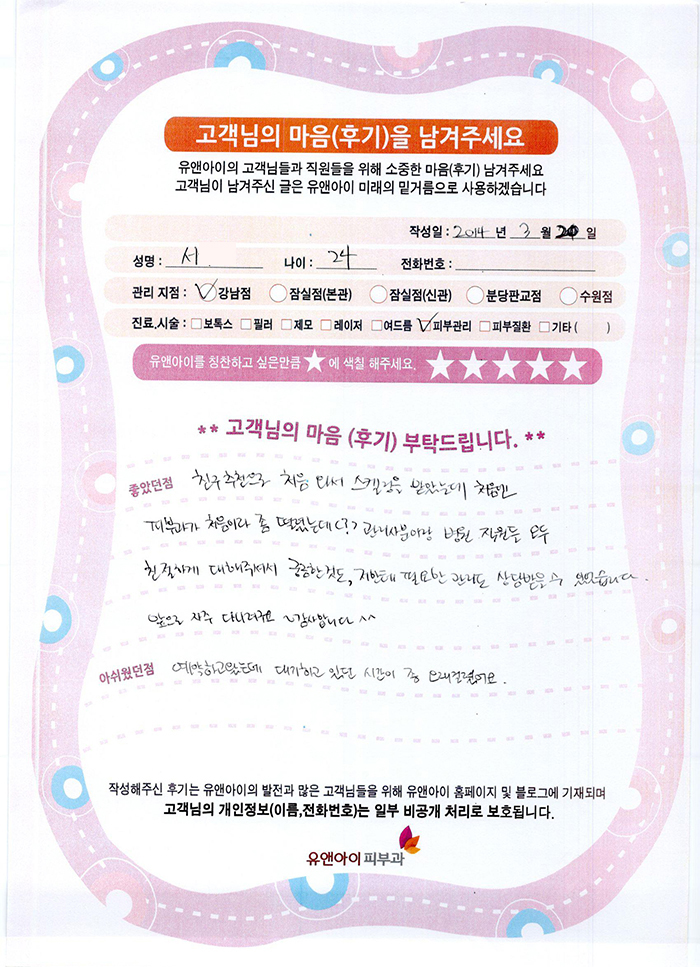 고객님의 마음(후기)을 남겨주세요
유앤아이의 고객님들과 직원들을 위해 소중한 마음(후기) 남겨주세요
고객님이 남겨주신 글은 유앤아이 미래의 밑거름으로 사용하겠습니다
작성일 : 2014 년 3 월 20 일
성명 : 서 나이 : 24 전화번호 :
관리 지점 : 강남점 잠실점(본관) 잠실점(신관) 분당판교점 수원점
진료,시술 : 보톡스 필러 제모 레이저 여드름 피부관리 피부질환 기타 ( )
유앤아이를 칭찬하고 싶은만큼 ★에 색칠 해주세요. ★★★★★
** 고객님의 마음 (후기) 부탁드립니다. **
좋았던점 친구추천으로 처음 와서 스케링을 받았는데 처음엔
피부과가 처음이라 좀 떨렸는데(?) 관리사분이랑 병원 직원들 모두
친절하게 대해주셔서 궁금한것도, 저한테 필요한 관리도 상담받을수 있었습니다.
앞으로 자주 다니려구요 감사합니다 ^^
아쉬웠던점 예약하고왔는데 대기하고 있던 시간이 좀 오래걸렸어요.
작성해주신 후기는 유앤아이의 발전과 많은 고객님들을 위해 유앤아이 홈페이지 및 블로그에 기재되며
고객님의 개인정보(이름,전화번호)는 일부 비공개 처리로 보호됩니다.
유앤아이 피부과